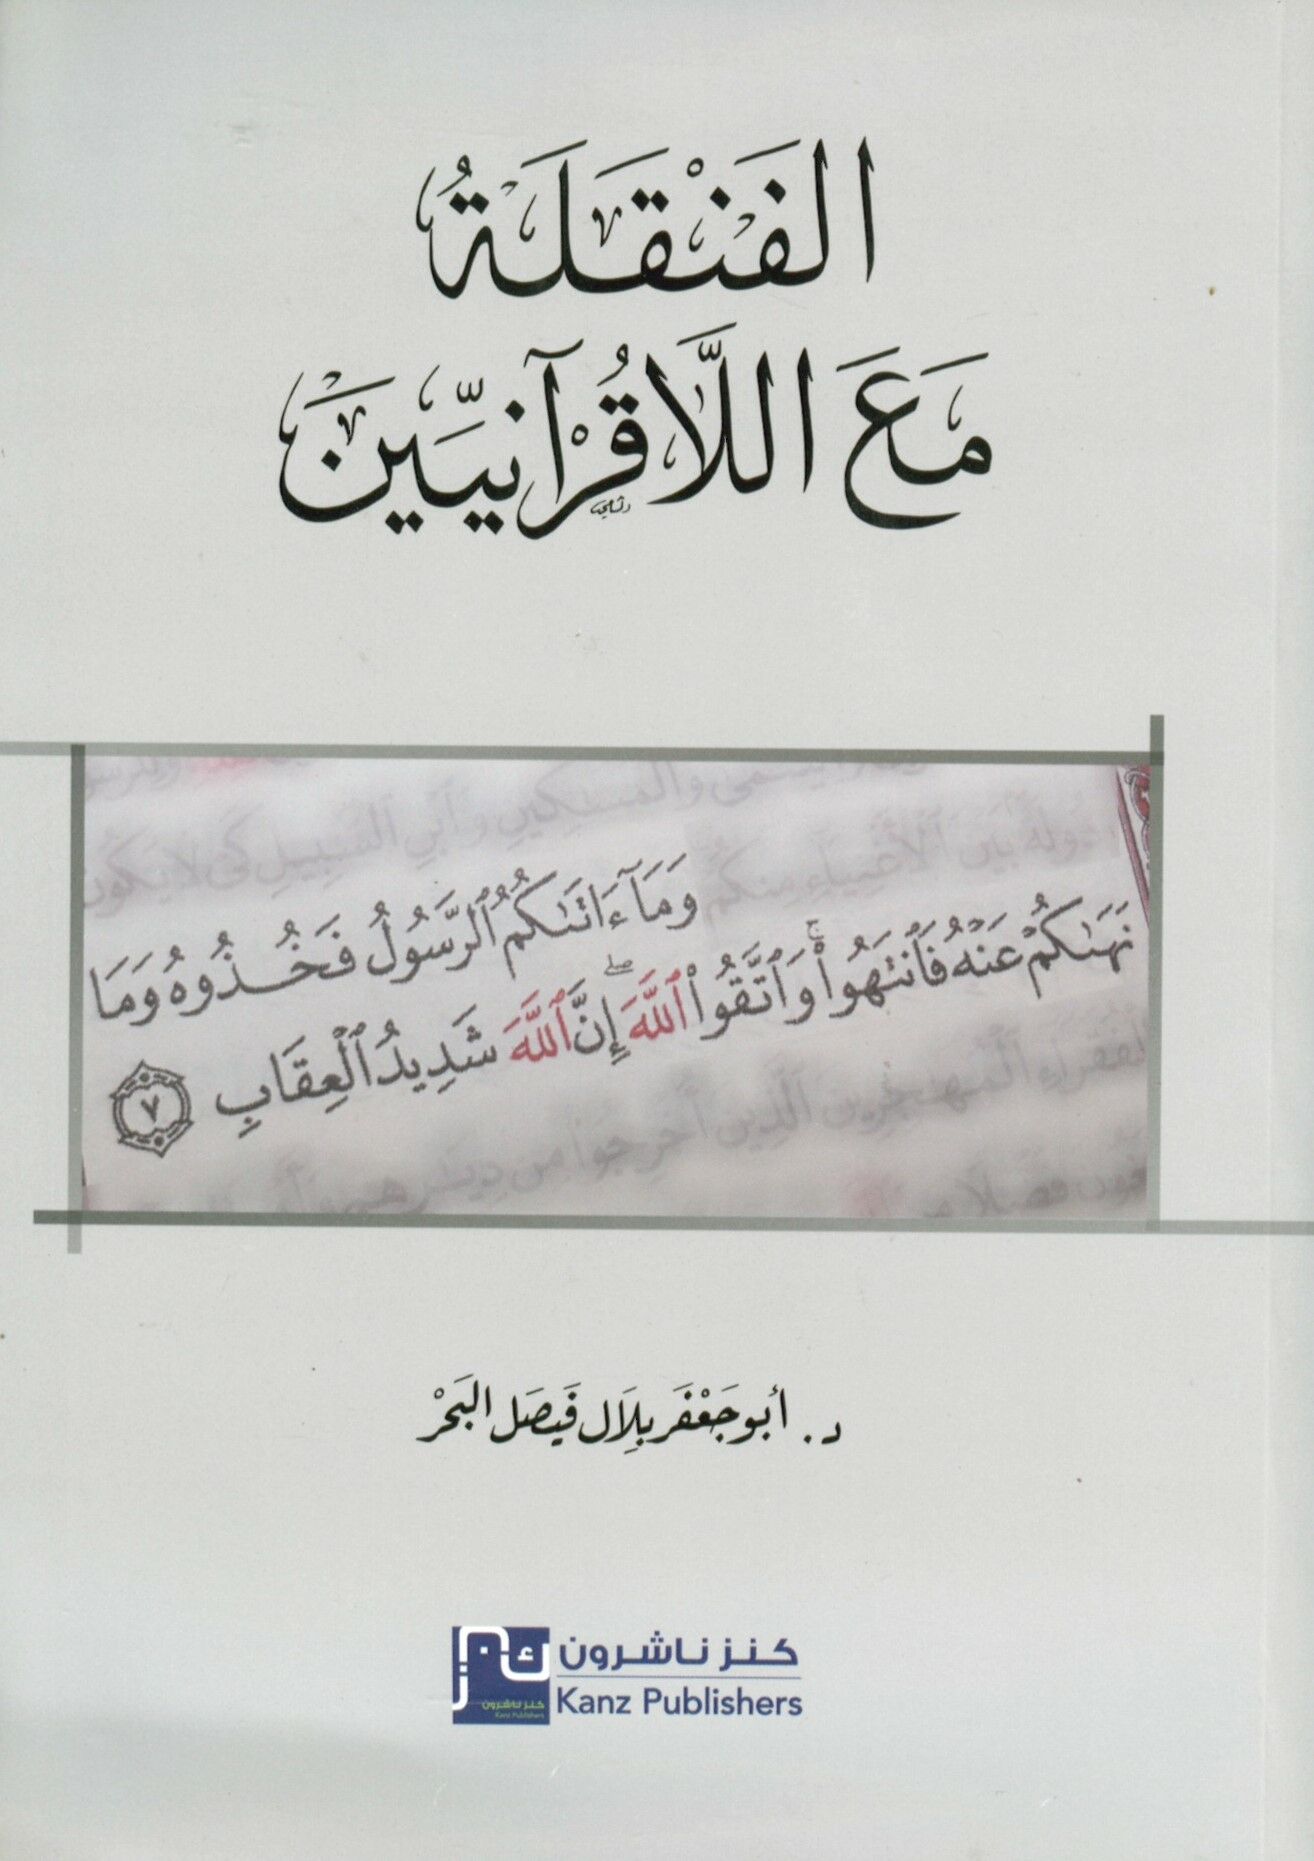 الفَنْقَلَةُ
مَعَ اللَّاقُرآنيِّينَ
وَمَآ ءَاتَىٰكُمُ ٱلرَّسُولُ فَخُذُوهُ وَمَا
نَهَىٰكُمْ عَنْهُ فَٱنتَهُوا۟ ۚ وَٱتَّقُوا۟ ٱللَّهَ ۖ إِنَّ ٱللَّهَ شَدِيدُ ٱلْعِقَابِ ٧
د. أبو جَعْفَر بِلَال فَيصَل البَحْرْ
كنز ناشرون
Kanz Publishers
كنز ناشرون
Kanz Publishers